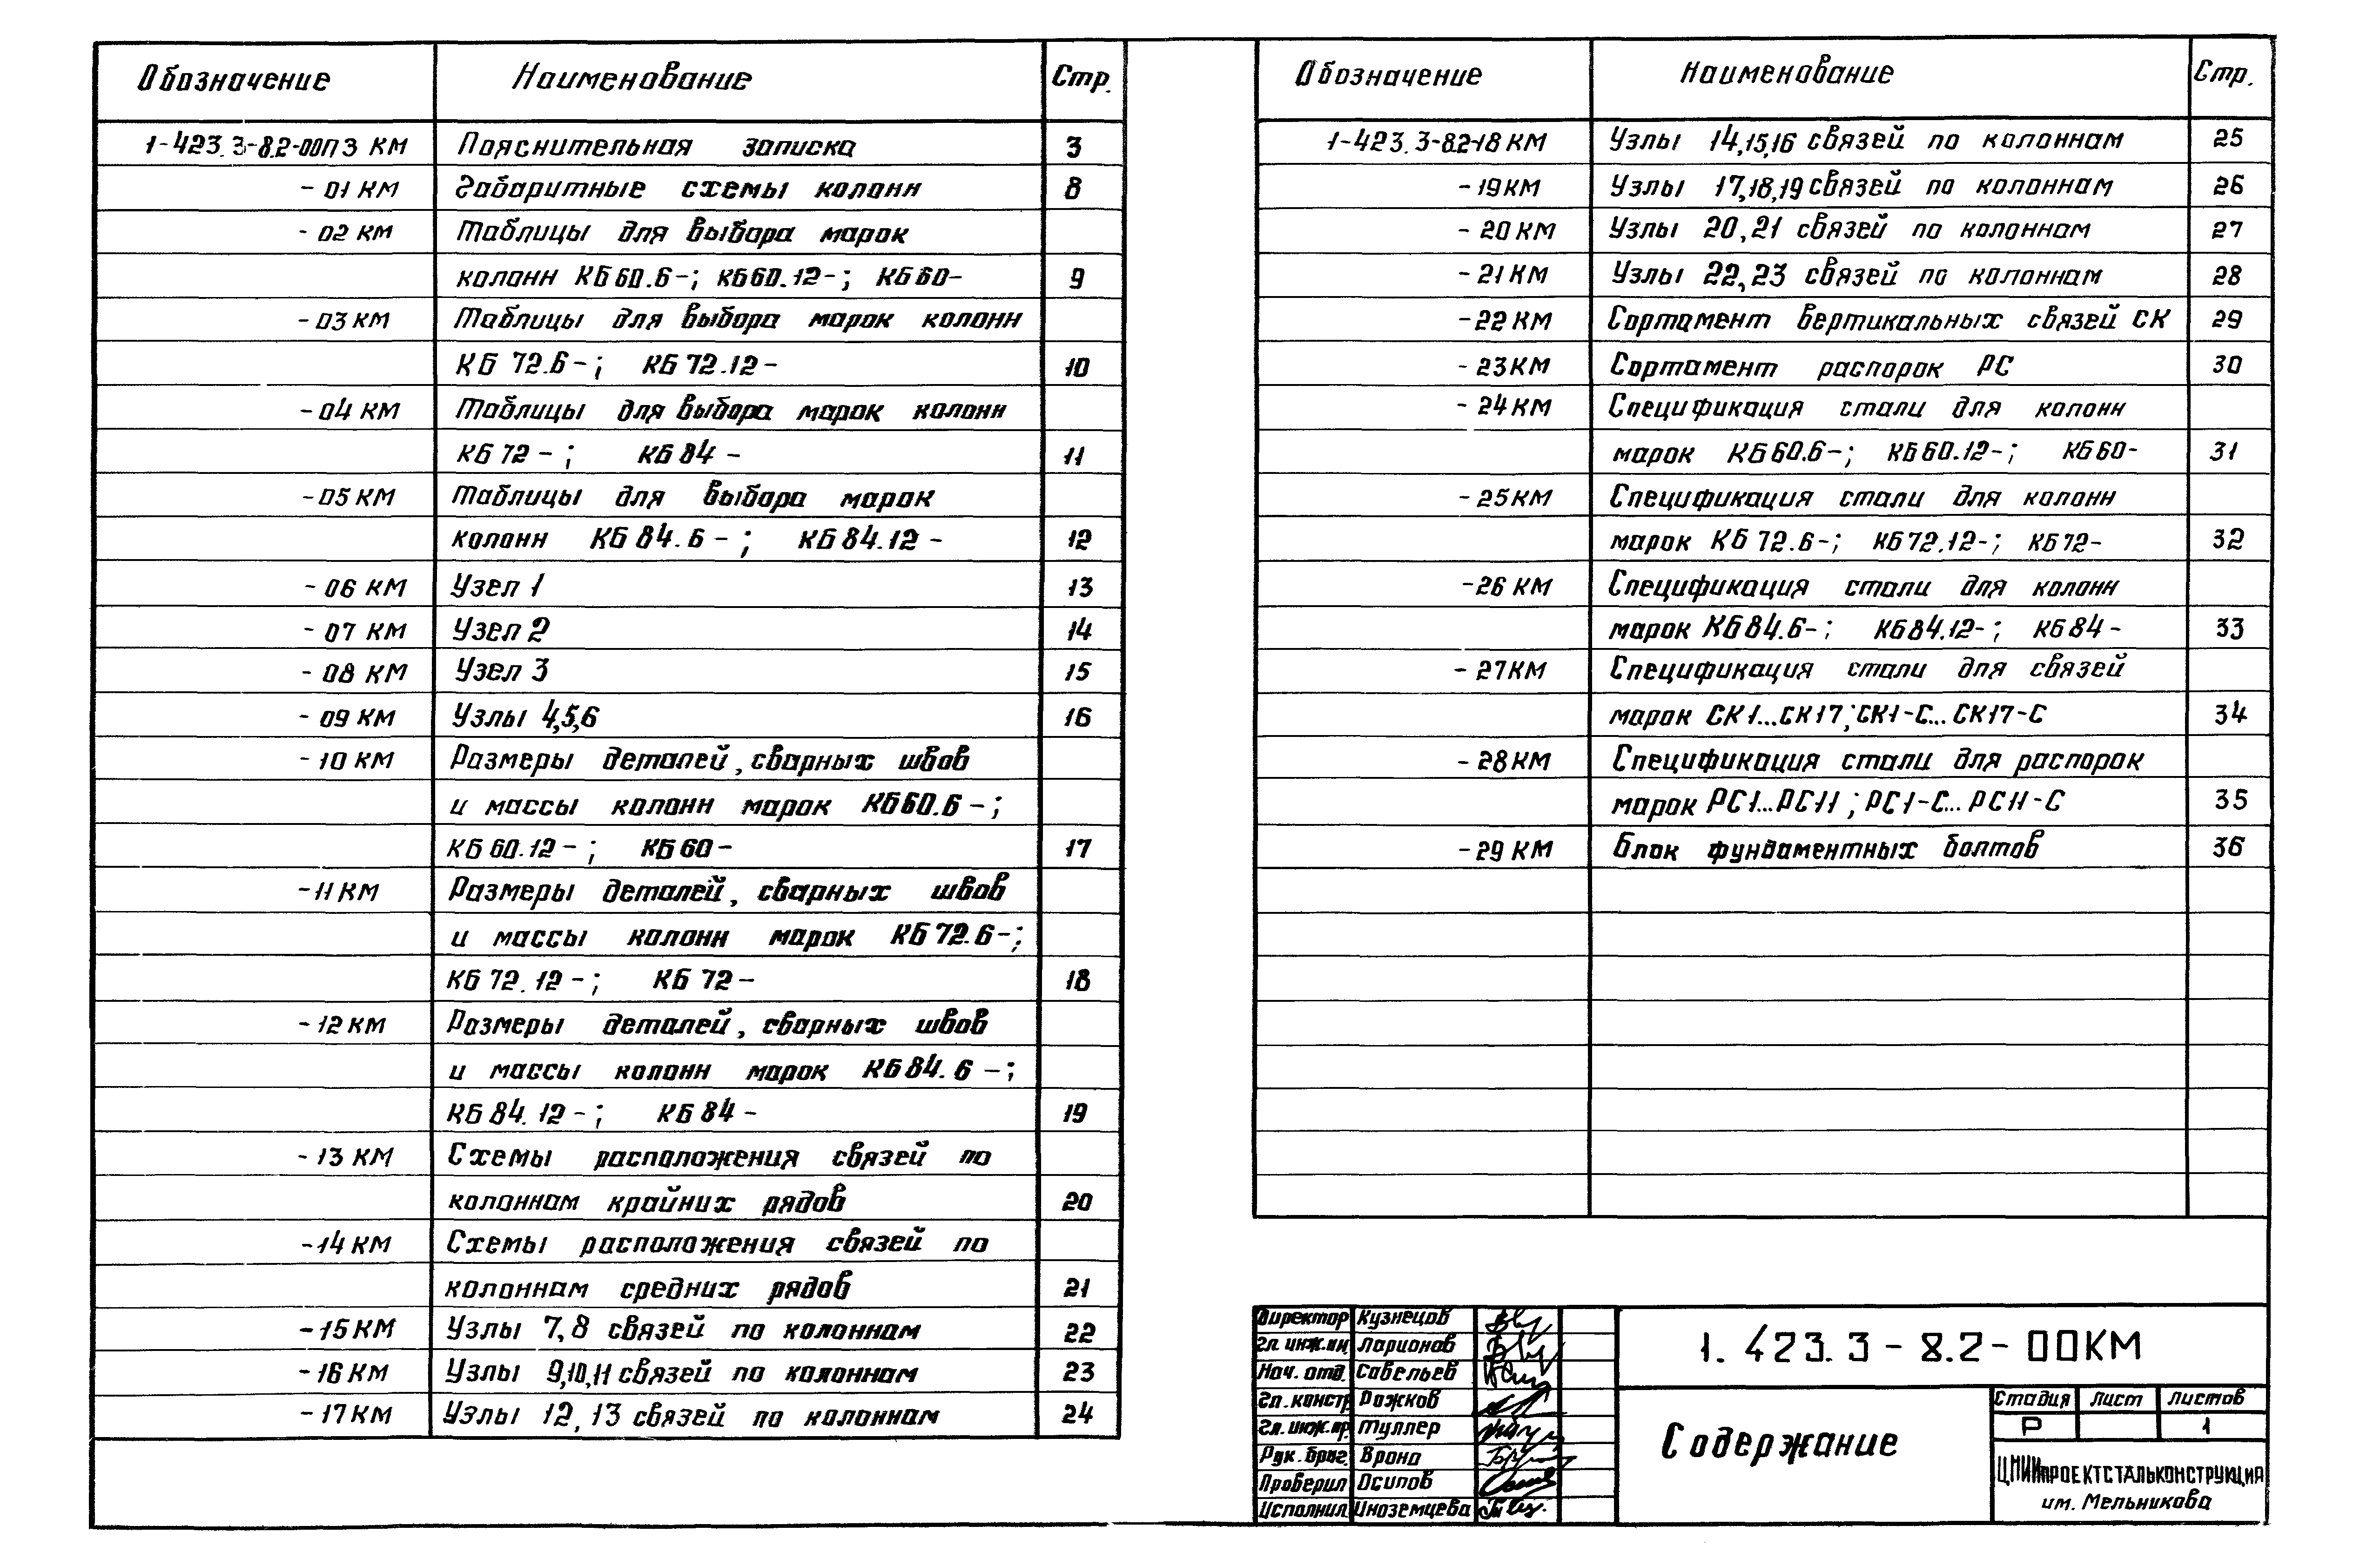 Обозначение Наименование Стр.
1-423.3-8.2-00ПЗ КМ Пояснительная записка 3
- 01 КМ Габаритные схемы колонн 8
- 02 КМ Таблицы для выбора марок
колонн КБ60.6-; КБ60.12-; КБ60- 9
- 03 КМ Таблицы для выбора марок колонн
КБ 72.6-; КБ 72.12- 10
- 04 КМ Таблицы для выбора марок колонн
КБ 72 -; КБ 84 - 11
- 05 КМ Таблицы для выбора марок
колонн КБ 84.6 -; КБ 84.12 - 12
- 06 КМ Узел 1 13
- 07 КМ Узел 2 14
- 08 КМ Узел 3 15
- 09 КМ Узлы 4,5,6 16
- 10 КМ Размеры деталей, сварных швов
и массы колонн марок КБ60.6 -;
КБ 60.12 -; КБ 60 - 17
- 11 КМ Размеры деталей, сварных швов
и массы колонн марок КБ 72.6-;
КБ 72.12 -; КБ 72 - 18
- 12 КМ Размеры деталей, сварных швов
и массы колонн марок КБ 84.6 -;
КБ 84.12 -; КБ 84 - 19
- 13 КМ Схемы расположения связей по
колоннам крайних рядов 20
- 14 КМ Схемы расположения связей по
колоннам средних рядов 21
- 15 КМ Узлы 7,8 связей по колоннам 22
- 16 КМ Узлы 9,10,11 связей по колоннам 23
- 17 КМ Узлы 12,13 связей по колоннам 24
Обозначение Наименование Стр.
1-423.3-8.2-18 КМ Узлы 14,15,16 связей по колоннам 25
- 19 КМ Узлы 17,18,19 связей по колоннам 26
- 20 КМ Узлы 20,21 связей по колоннам 27
- 21 КМ Узлы 22,23 связей по колоннам 28
- 22 КМ Сортамент вертикальных связей СК 29
- 23 КМ Сортамент распорок РС 30
- 24 КМ Спецификация стали для колонн
марок КБ60.6-; КБ60.12-; КБ60- 31
- 25 КМ Спецификация стали для колонн
марок КБ 72.6-; КБ72.12-; КБ72- 32
- 26 КМ Спецификация стали для колонн
марок КБ84.6-; КБ84.12-; КБ84 - 33
- 27 КМ Спецификация стали для связей
марок СК1...СК17; СК1-С...СК17-С 34
- 28 КМ Спецификация стали для распорок
марок РС1...РС11; РС1-С...РС11-С 35
- 29 КМ Блок фундаментных болтов 36
Директор Кузнецов
Гл. инж. ин. Ларионов
Нач. отд. Савельев
Гл. констр. Рожков
Гл. инж. пр. Туллер
Рук. бриг. Врона
Проверил Осипов
Исполнил Иноземцева
1.423.3 - 8.2 - 00КМ
Содержание
Стадия Лист Листов
Р 1
ЦНИИПРОЕКТСТАЛЬКОНСТРУКЦИЯ
им. Мельникова